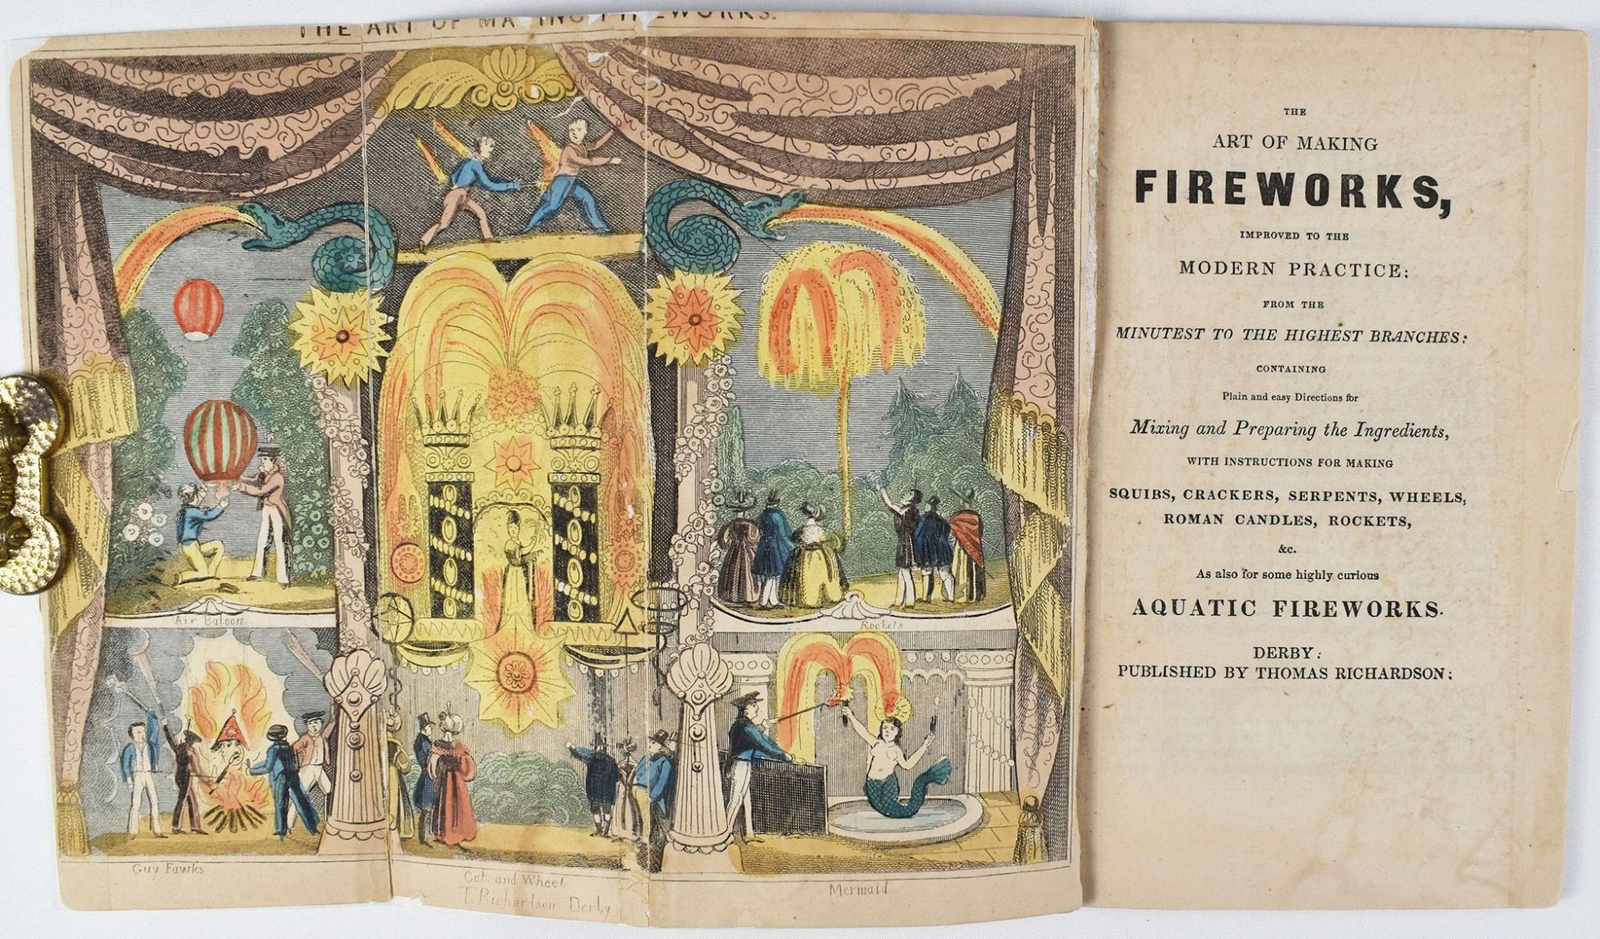 THE ART OF MAKING FIREWORKS.
Air Baloon
Rockets
Guy Fawks
Cot. and Wheel
T. Richardson Derby
Mermaid
THE
ART OF MAKING
FIREWORKS,
IMPROVED TO THE
MODERN PRACTICE;
FROM THE
MINUTEST TO THE HIGHEST BRANCHES:
CONTAINING
Plain and easy Directions for
Mixing and Preparing the Ingredients,
WITH INSTRUCTIONS FOR MAKING
SQUIBS, CRACKERS, SERPENTS, WHEELS,
ROMAN CANDLES, ROCKETS,
&c.
As also for some highly curious
AQUATIC FIREWORKS.
DERBY:
PUBLISHED BY THOMAS RICHARDSON;